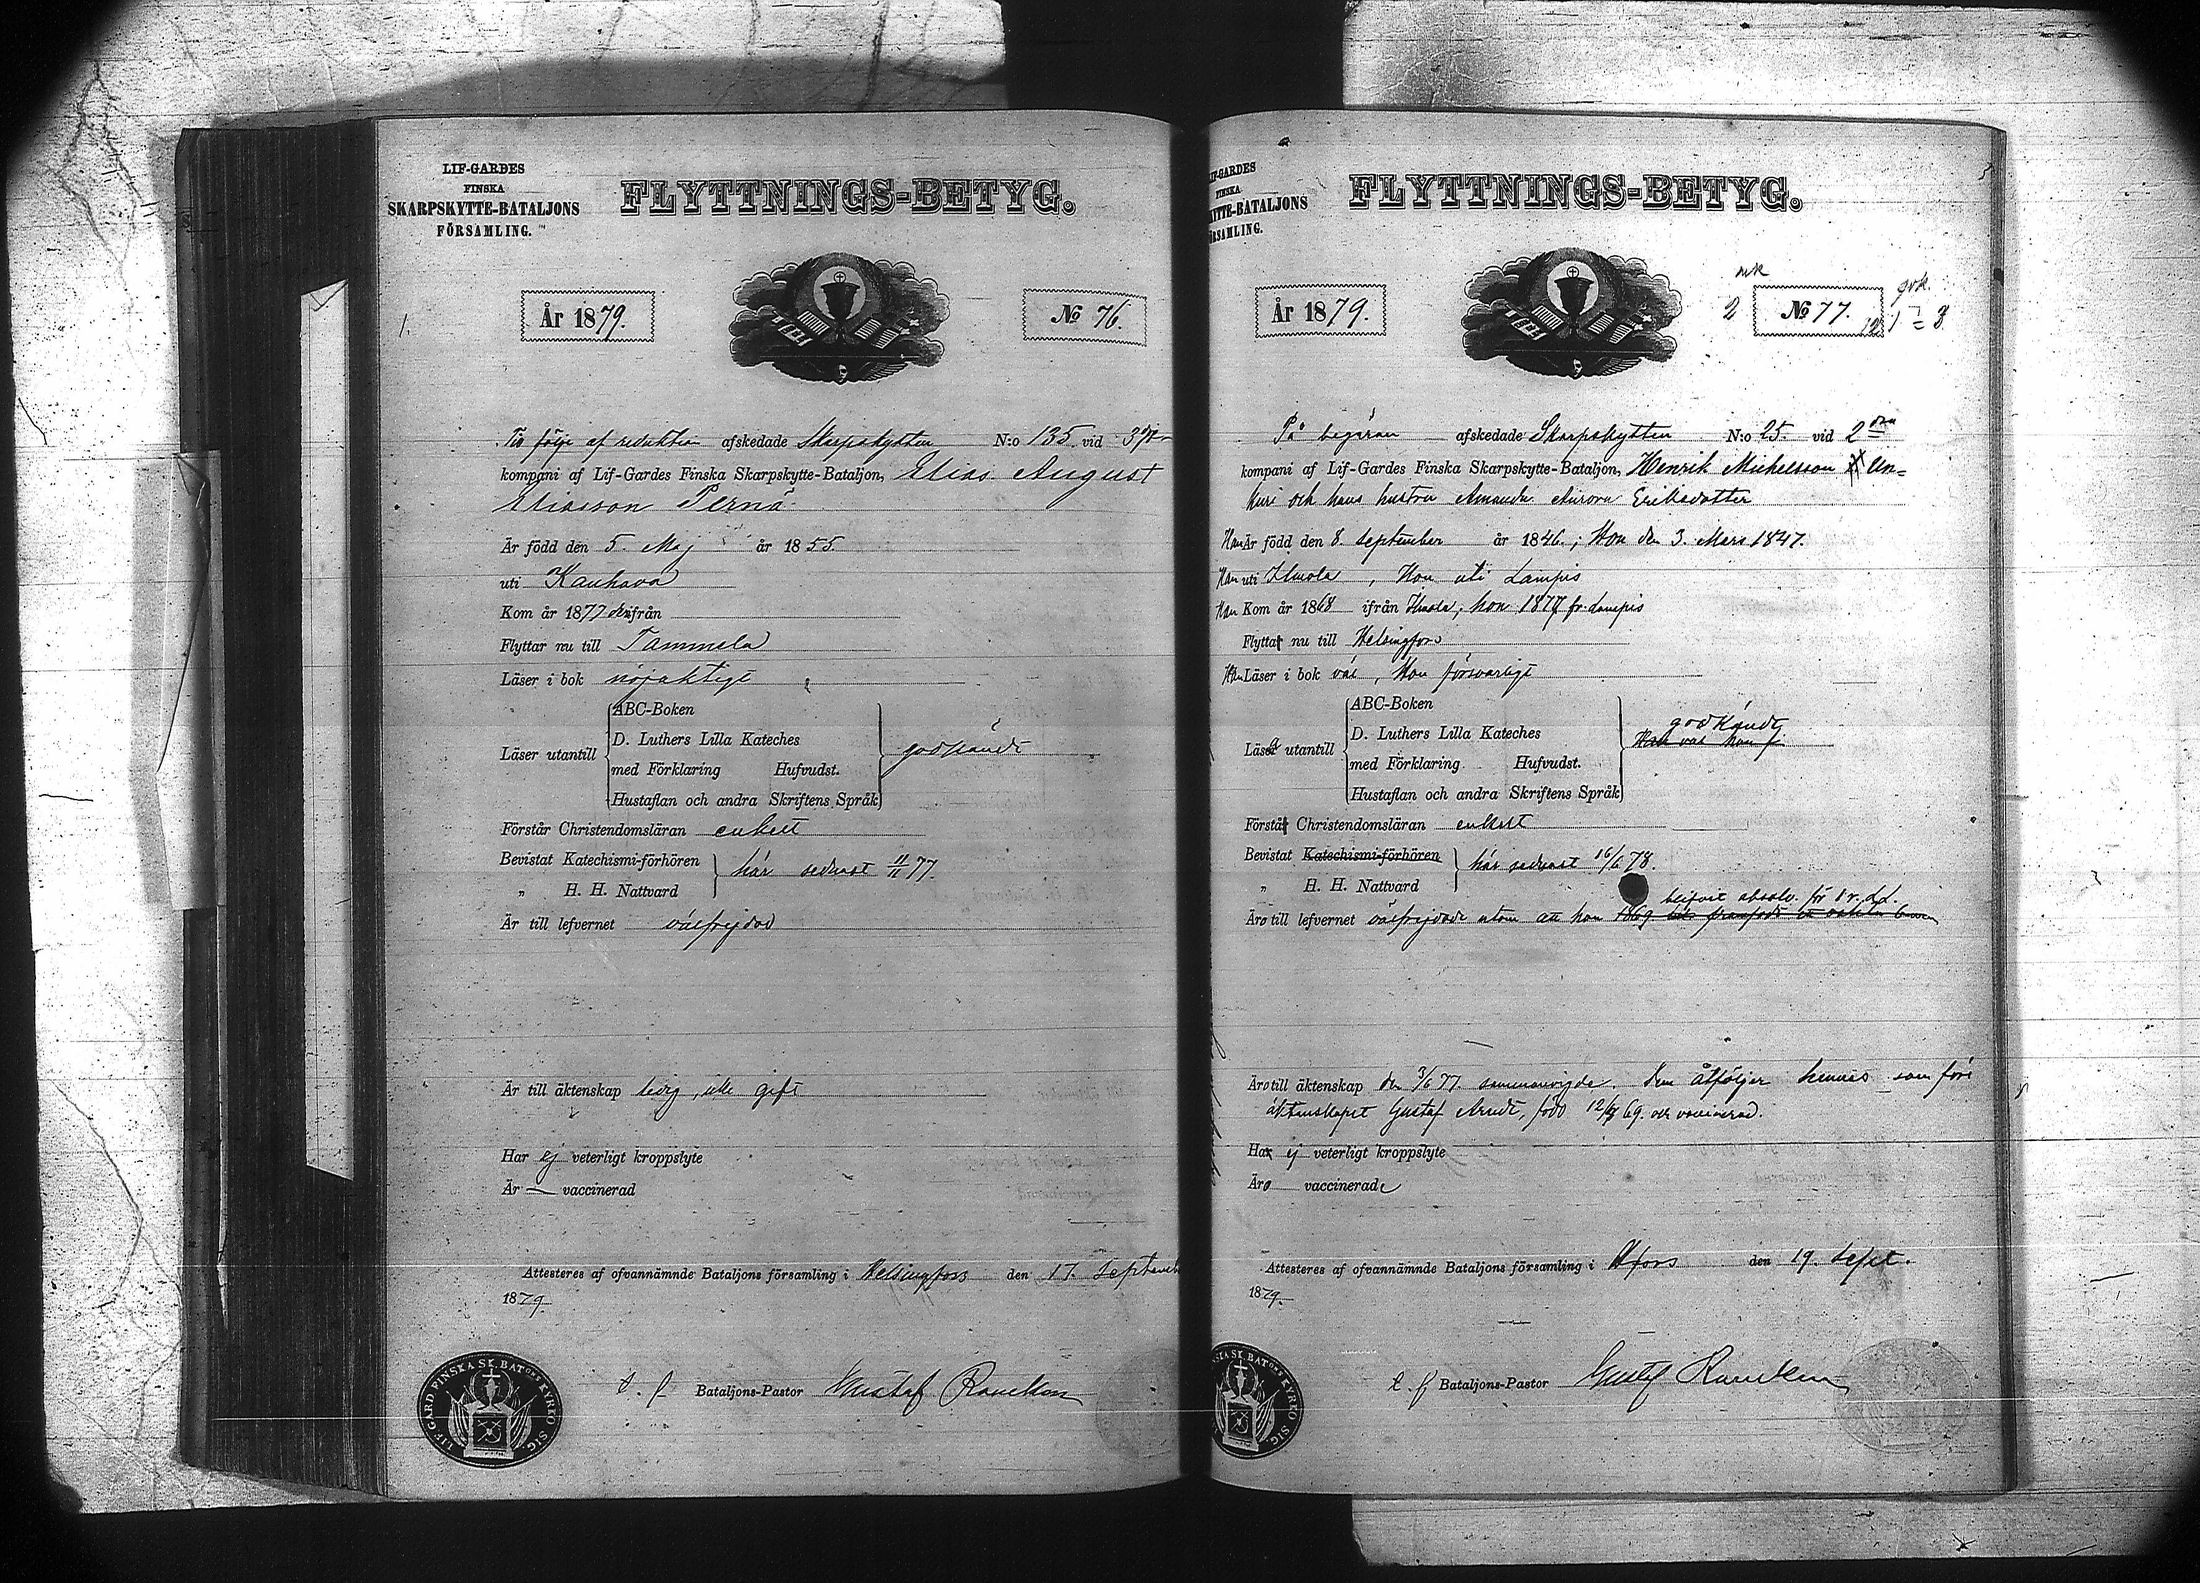 LIF-GARDES
FINSKA
SKARPSKYTTE-BATALJONS
FÖRSAMLING.
FLYTTNINGS-BETYG.
1.
År 1879.
No 76.
Till följe af reduktion afskedade Skarpskytten N:o 135 vid 3
kompani af Lif-Gardes Finska Skarpskytte-Bataljon, Elias August
Eliasson Pernä
Är född den 5. Maj år 1855.
uti Kauhava
Kom år 1877 ifrån
Flyttar nu till Tammela
Läser i bok nöjaktigt
ABC-Boken
D. Luthers Lilla Kateches
Läser utantill
med Förklaring Hufvudst.
godkändt
Hustaflan och andra Skriftens Språk
Förstår Christendomsläran enkelt
Bevistat Katechismi-förhören
här sednast 11/11 77.
„ H. H. Nattvard
Är till lefvernet välfrejdad
Är till äktenskap ledig, icke gift
Har ej veterligt kroppslyte
Är — vaccinerad
Attesteres af ofvannämnde Bataljons församling i Helsingfors den 17. September
1879.
t. f. Bataljons-Pastor Gustaf
LIF.GARD.FINSKA SK.BATONS KYRKO SIG.
LIF-GARDES
FINSKA
SKYTTE-BATALJONS
FÖRSAMLING.
FLYTTNINGS-BETYG.
År 1879.
mk
2
No 77.
På begäran afskedade Skarpskytten N:o 25. vid 2
kompani af Lif-Gardes Finska Skarpskytte-Bataljon, Henrik Michelsson Un=
kuri och hans hustru Amanda Aurora Eriksdotter
Han Är född den 8. September år 1846.; Hon den 3. Mars 1847.
Han uti Ilmola, Hon uti Lampis
Han Kom år 1868 ifrån Ilmola; hon 1877 fr. Lampis
Flytta nu till Helsingfors
Han Läser i bok väl, Hon försvarligt
ABC-Boken
D. Luthers Lilla Kateches
Läsa utantill
med Förklaring Hufvudst.
godkändt
Han väl hon f.
Hustaflan och andra Skriftens Språk
Förstå Christendomsläran enkelt
Bevistat Katechismi-förhören
här sednast 16/6 78.
„ H. H. Nattvard
blifvit absolv. för
Äro till lefvernet välfrejdade utom att hon 1869
Äro till äktenskap den 3/6 77. sammanvigde. Dem åtföljer hennes son före
äktenskapet Gustaf Arvid, född 69. och vaccinerad.
Ha ej veterligt kroppslyte
Äro vaccinerade
Attesteres af ofvannämnde Bataljons församling i Hfors den 19. Sept.
1879.
t. f. Bataljons-Pastor Gustaf
SKA SK.BATONS KYRKO SIG.